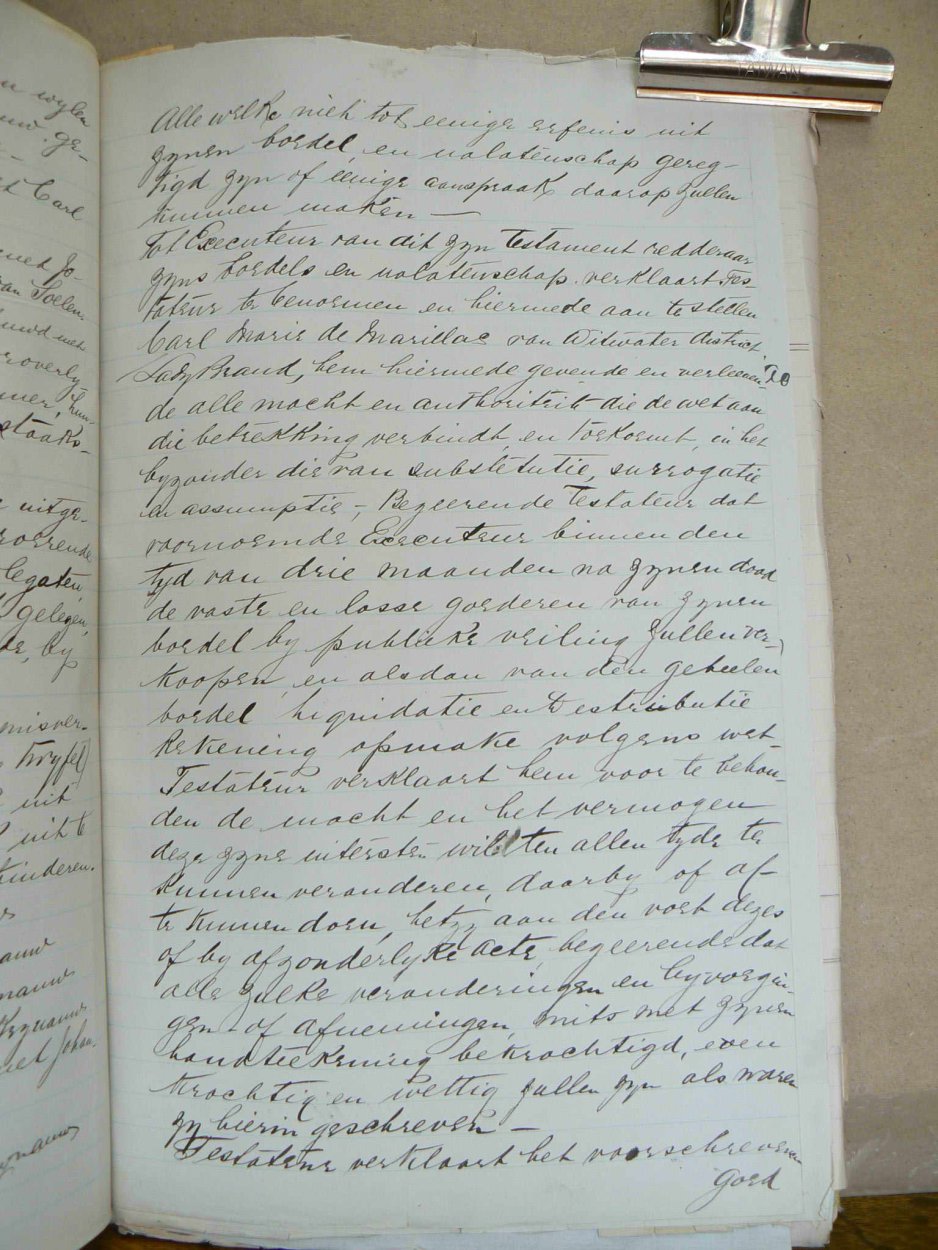 TAIWAN
n wylen
uwd. ge-
Carl
met Jo-
van Soelen
huwd met
roverly-
mer,
staaks-
uitge-
roerende
legaten,
gelegen,
de, by
misver-
twyfel
uit
uit te
kinderen.
nauw
nauw
Keznauw
et Johan.
znauw
Alle welke nich tot eenige erfenis uit
zynen boedel en nalatenschap gereg-
tigd zyn of eenige aanspraak daarop zullen
kunnen maken —
Tot Executeur van dit zyn Testament redderaar
zyns boedels en nalatenschap verklaart Tes-
tateur te benoemen en hiermede aan te stellen
Carl Marie de Marillac van Witwater district
Lady Brand, hem hiermede gevende en verleenen
de alle macht en authoriteit die de wet aan
die betrekking verbindt en toekomt, in het
byzonder die van substitutie, surrogatie
en assumptie, - Begeerende Testateur dat
voornoemde Executeur binnen den
tyd van drie maanden na zynen dood
de vaste en losse goederen van zynen
boedel by publieke veiling zullen ver-
koopen, en alsdan van den geheelen
boedel liquidatie en Destributie
Rekening opmake volgens wet
Testateur verklaart hem voor te behou-
den de macht en het vermogen
deze zyne uiterste wil ten allen tyde te
kunnen veranderen, daarby of af-
te kunnen doen, hetzy aan den voet dezes
of by afzonderlyke acte, begeerende dat
alle zulke veranderingen en byvoegin-
gen of afnemingen, mits met zynen
handteekening bekrachtigd, even
krachtig en wettig zullen zyn als waren
zy hierin geschreven —
Testateur verklaart het voorschreven
goed